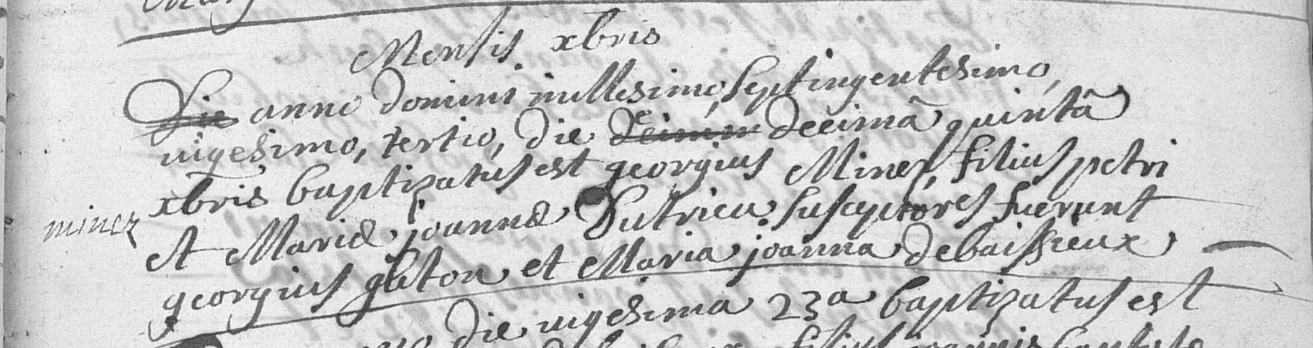 Mensis xbris
Die anno domini millesimo, septingentesimo,
vigesimo, tertio, die decimã quintã
xbris baptizatus est georgius Minez, filius petri
minez
et Mariæ joannæ Dutrieu, susceptores fuerunt
georgius gluton et Maria joanna debaissieux
die vigesima 23a baptizatus est